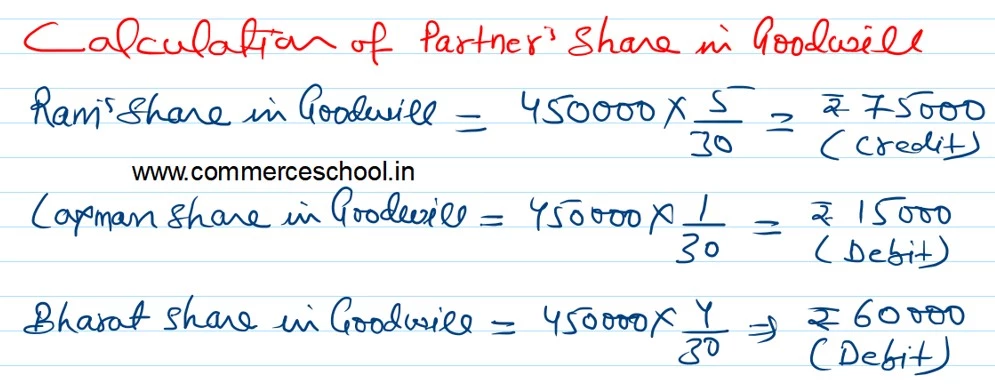 Calculation of Partner's Share in Goodwill
Ram's Share in Goodwill = 450000 × 5/30 = ₹ 75000
(Credit)
www.commerceschool.in
Laxman Share in Goodwill = 450000 × 1/30 = ₹ 15000
(Debit)
Bharat Share in Goodwill = 450000 × 4/30 ⇒ ₹ 60000
(Debit)